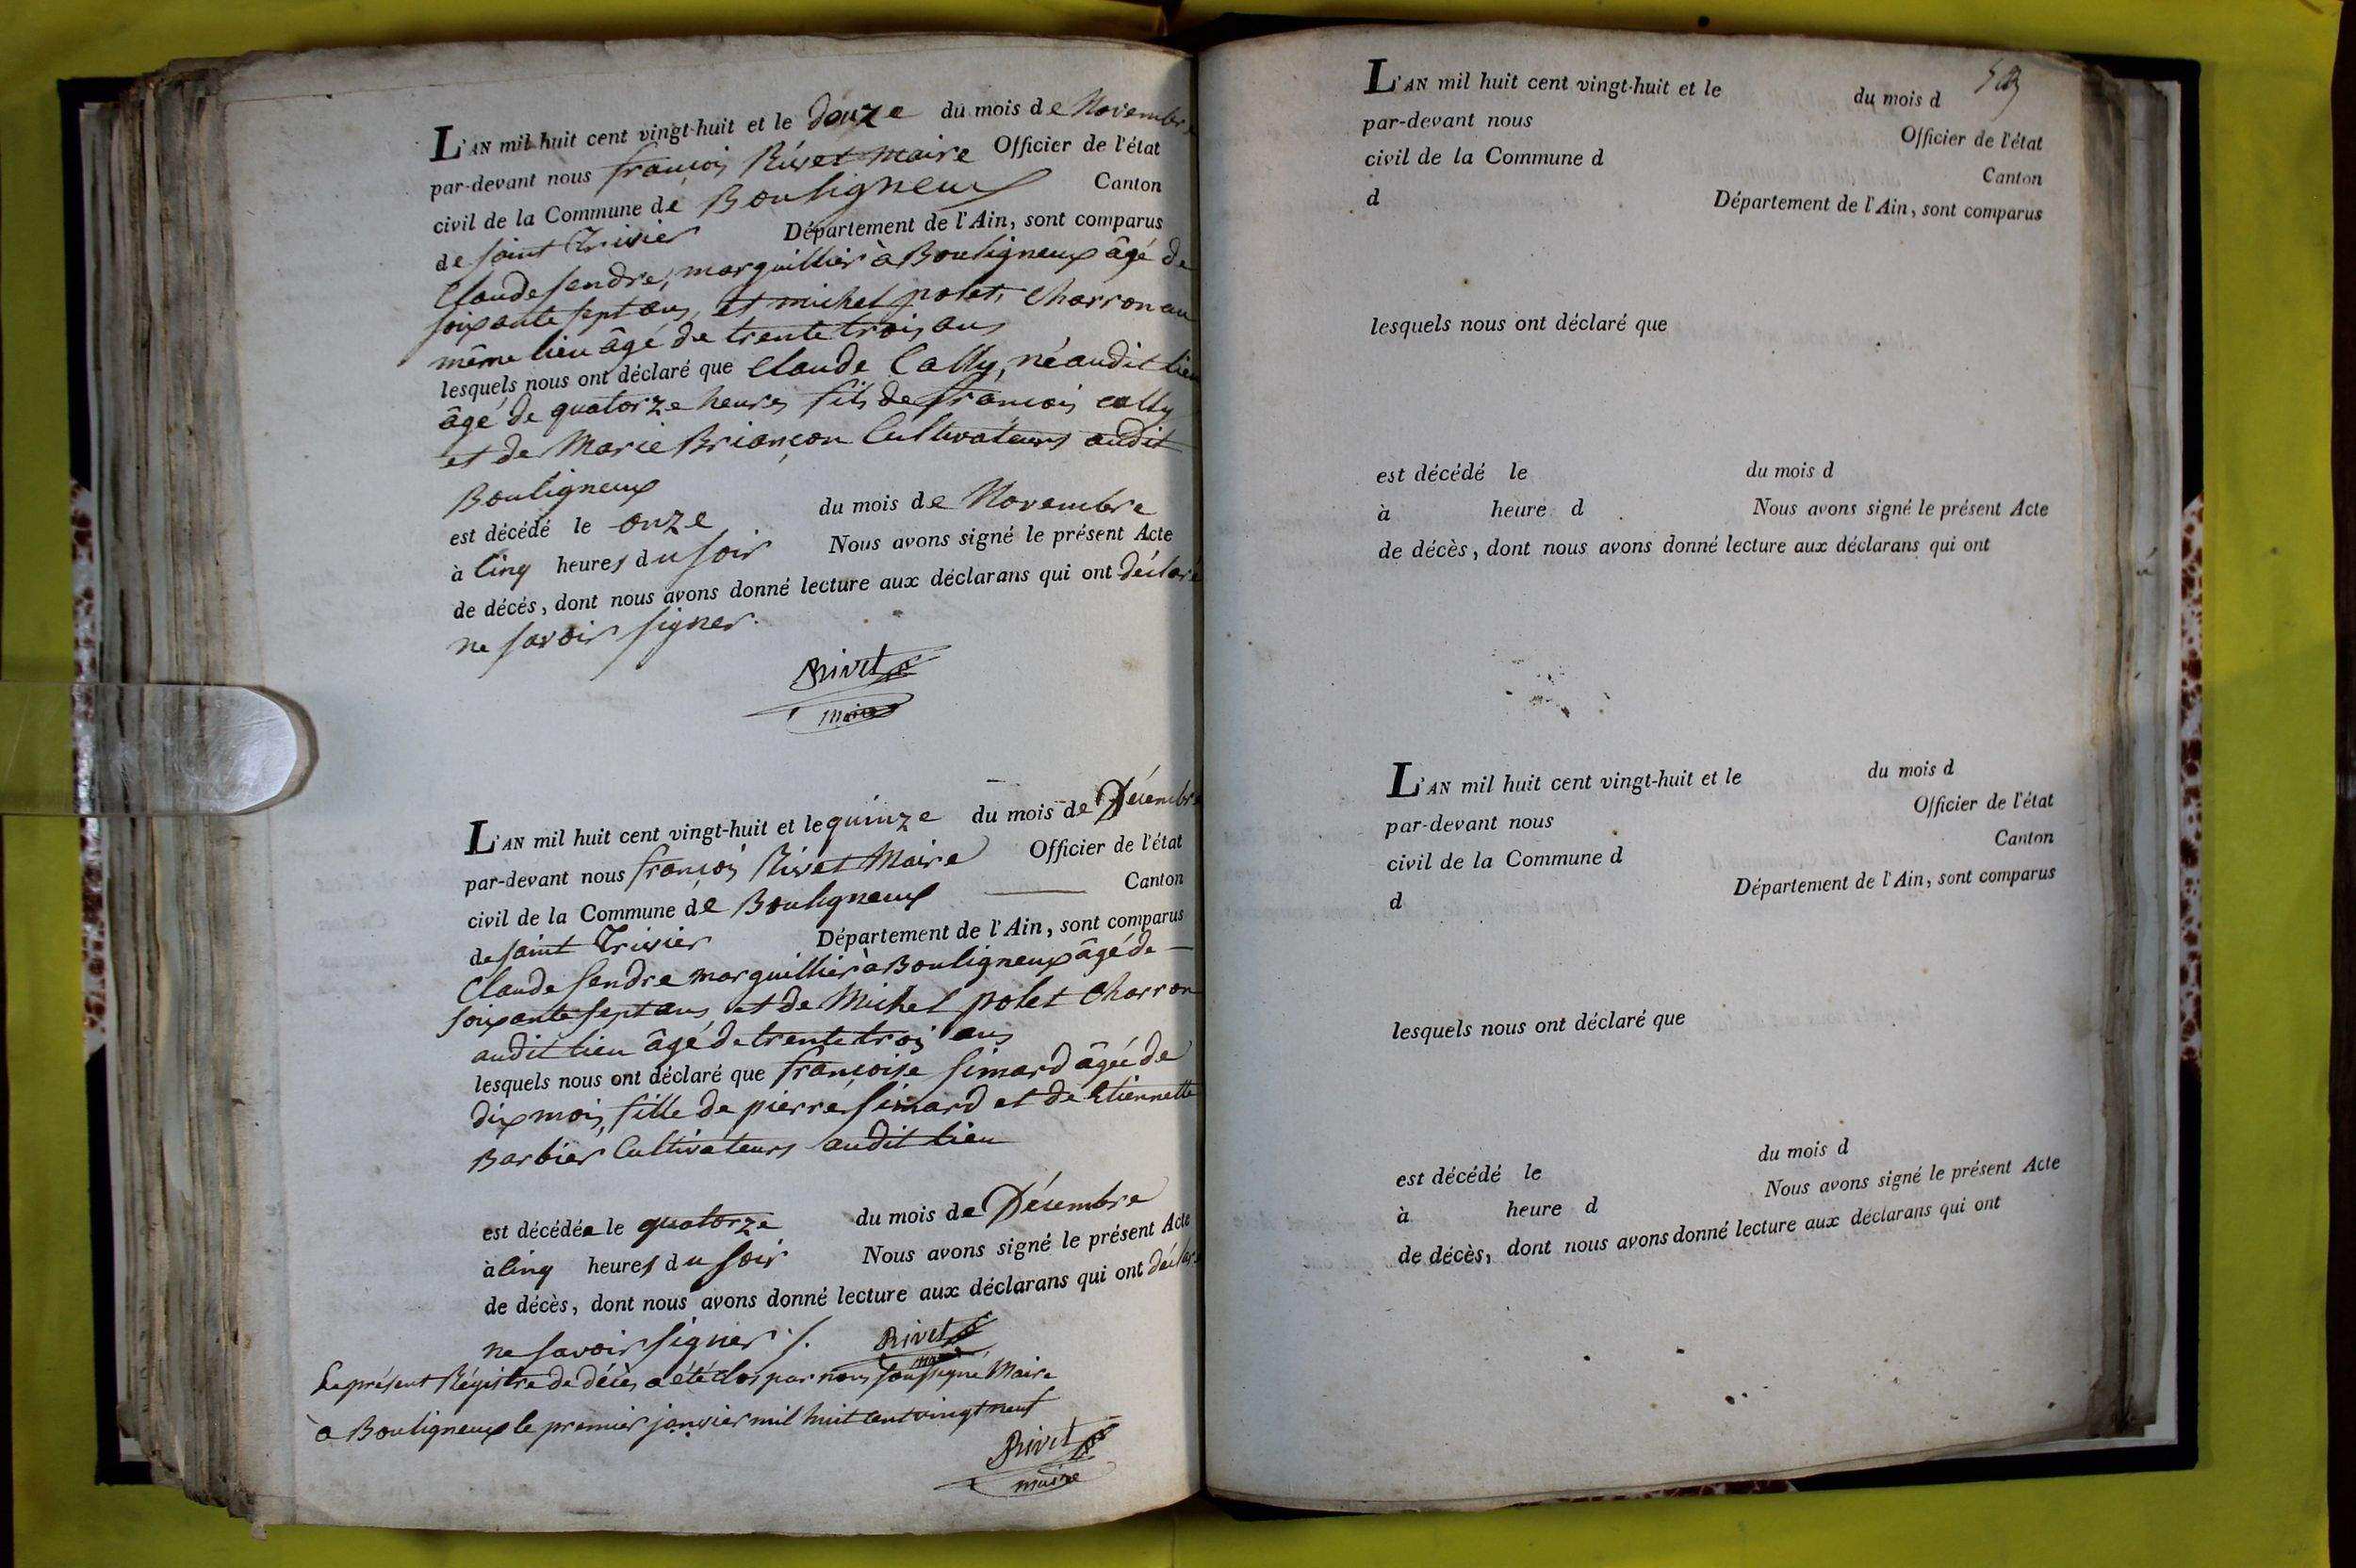 L'AN mil huit cent vingt-huit et le douze du mois de Novembre
par-devant nous françois Rivet Maire Officier de l'état
civil de la Commune de Bouligneux Canton
de saint Trivier Département de l'Ain, sont comparus
Claude Sendre, marguillier à Bouligneux âgé de
soixante sept ans, et michel polet, Charron au
même lieu âgé de trente trois ans
lesquels nous ont déclaré que Claude Cally, né audit lieu
âgé de quatorze heures fils de françois cally
et de Marie Briançon Cultivateurs audit
Bouligneux
est décédé le onze du mois de Novembre
à Cinq heures du soir Nous avons signé le présent Acte
de décés, dont nous avons donné lecture aux déclarans qui ont déclaré
ne savoir signer.
Rivet
maire
L'AN mil huit cent vingt-huit et le quinze du mois de Décembre
par-devant nous françois Rivet Maire Officier de l'état
civil de la Commune de Bouligneux Canton
de saint Trivier Département de l'Ain, sont comparus
Claude Sendre marguillier à Bouligneux âgé de
soixante sept ans et de Michel polet Charron
audit lieu âgé de trente trois ans
lesquels nous ont déclaré que françoise Simard âgée de
dix mois, fille de pierre Simard et de Etiennette
Barbier Cultivateurs audit lieu
est décédée le quatorze du mois de Décembre
à Cinq heures du soir Nous avons signé le présent Acte
de décès, dont nous avons donné lecture aux déclarans qui ont déclaré
ne savoir signer ./. Rivet
maire
Le présent Régistre de décès a été clos par nous soussigné Maire
à Bouligneux le premier janvier mil huit cent vingt neuf
Rivet
maire
L'AN mil huit cent vingt-huit et le du mois d
par-devant nous Officier de l'état
civil de la Commune d Canton
d Département de l'Ain, sont comparus
lesquels nous ont déclaré que
est décédé le du mois d
à heure d Nous avons signé le présent Acte
de décès, dont nous avons donné lecture aux déclarans qui ont
L'AN mil huit cent vingt-huit et le du mois d
par-devant nous Officier de l'état
civil de la Commune d Canton
d Département de l'Ain, sont comparus
lesquels nous ont déclaré que
est décédé le du mois d
à heure d Nous avons signé le présent Acte
de décès, dont nous avons donné lecture aux déclarans qui ont